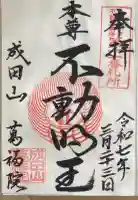 奉拝
令和七年
三月二十三日
本尊
不動明王
成田山
萬福院